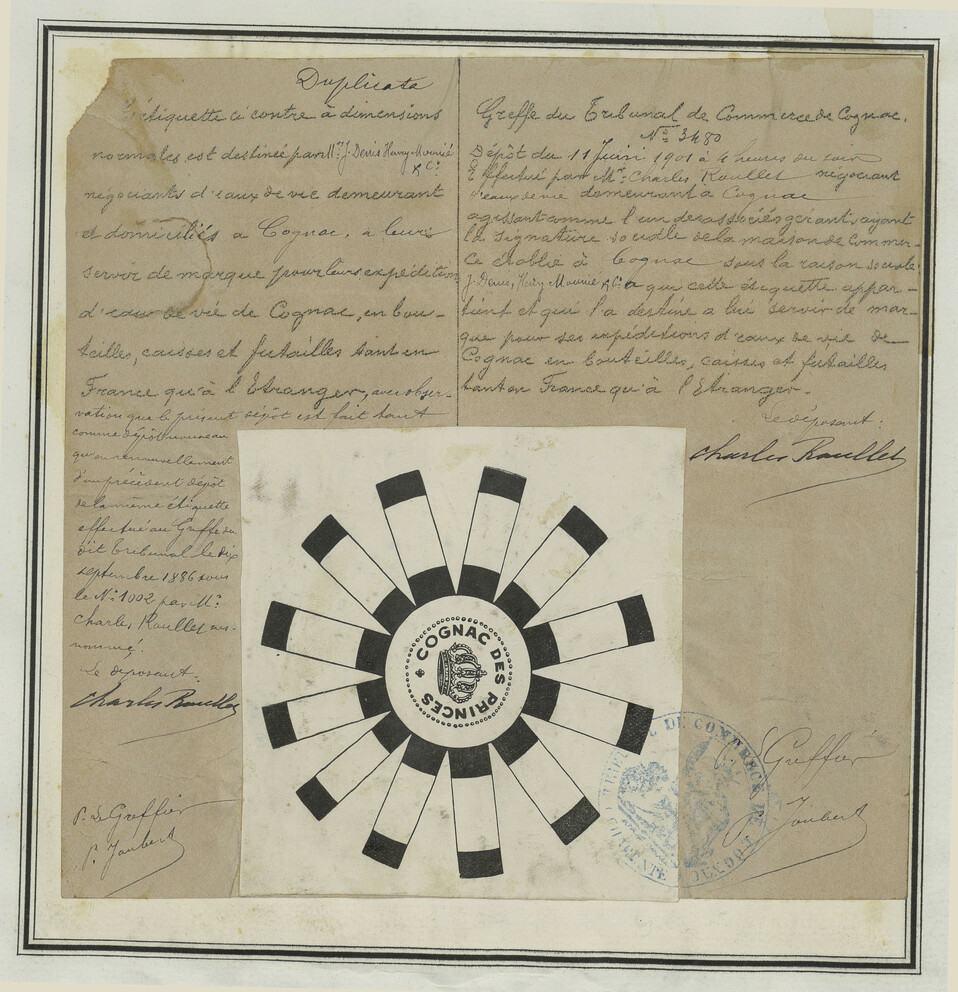 Duplicata
L'étiquette ci contre à dimensions
normales est destinée par Mrs J. Denis Henry-Mounié
& Co
négociants d'eaux de vie demeurant
et domiciliés à Cognac, à leurs
servir de marque pour leurs expéditions
d'eau de vie de Cognac, en bou-
teilles, caisses et futailles tant en
France qu'à l'Etranger, avec obser-
vation que le présent dépôt est fait tant
comme dépôt nouveau
qu'en renouvellement
d'un précédent dépôt
de la même étiquette
effectué au Greffe du
dit Tribunal le dix
septembre 1886 sous
le No 1002 par Mr
Charles Roullet sus-
nommé.
Le déposant:
Charles Roullet
P. Le Greffier
P. Joubert
Greffe du Tribunal de Commerce de Cognac.
No 3480
Dépôt du 11 Juin 1901 à 4 heures du soir
Effectué par Mr Charles Roullet négociant
d'eaux de vie demeurant à Cognac
agissant comme l'un des associés gérants, ayant
la signature sociale de la maison de Commer-
ce établie à Cognac sous la raison sociale:
J. Denis, Henry Mounié & Co a que cette étiquette appar-
tient et qu'il l'a destiné a lui servir de mar-
que pour ses expéditions d'eaux de vie de
Cognac en bouteilles, caisses et futailles
tant en France qu'à l'Etranger.
Le déposant:
Charles Roullet
COGNAC DES PRINCES
TRIBUNAL DE COMMERCE DE
CHARENTE
P. Le Greffier
P. Joubert